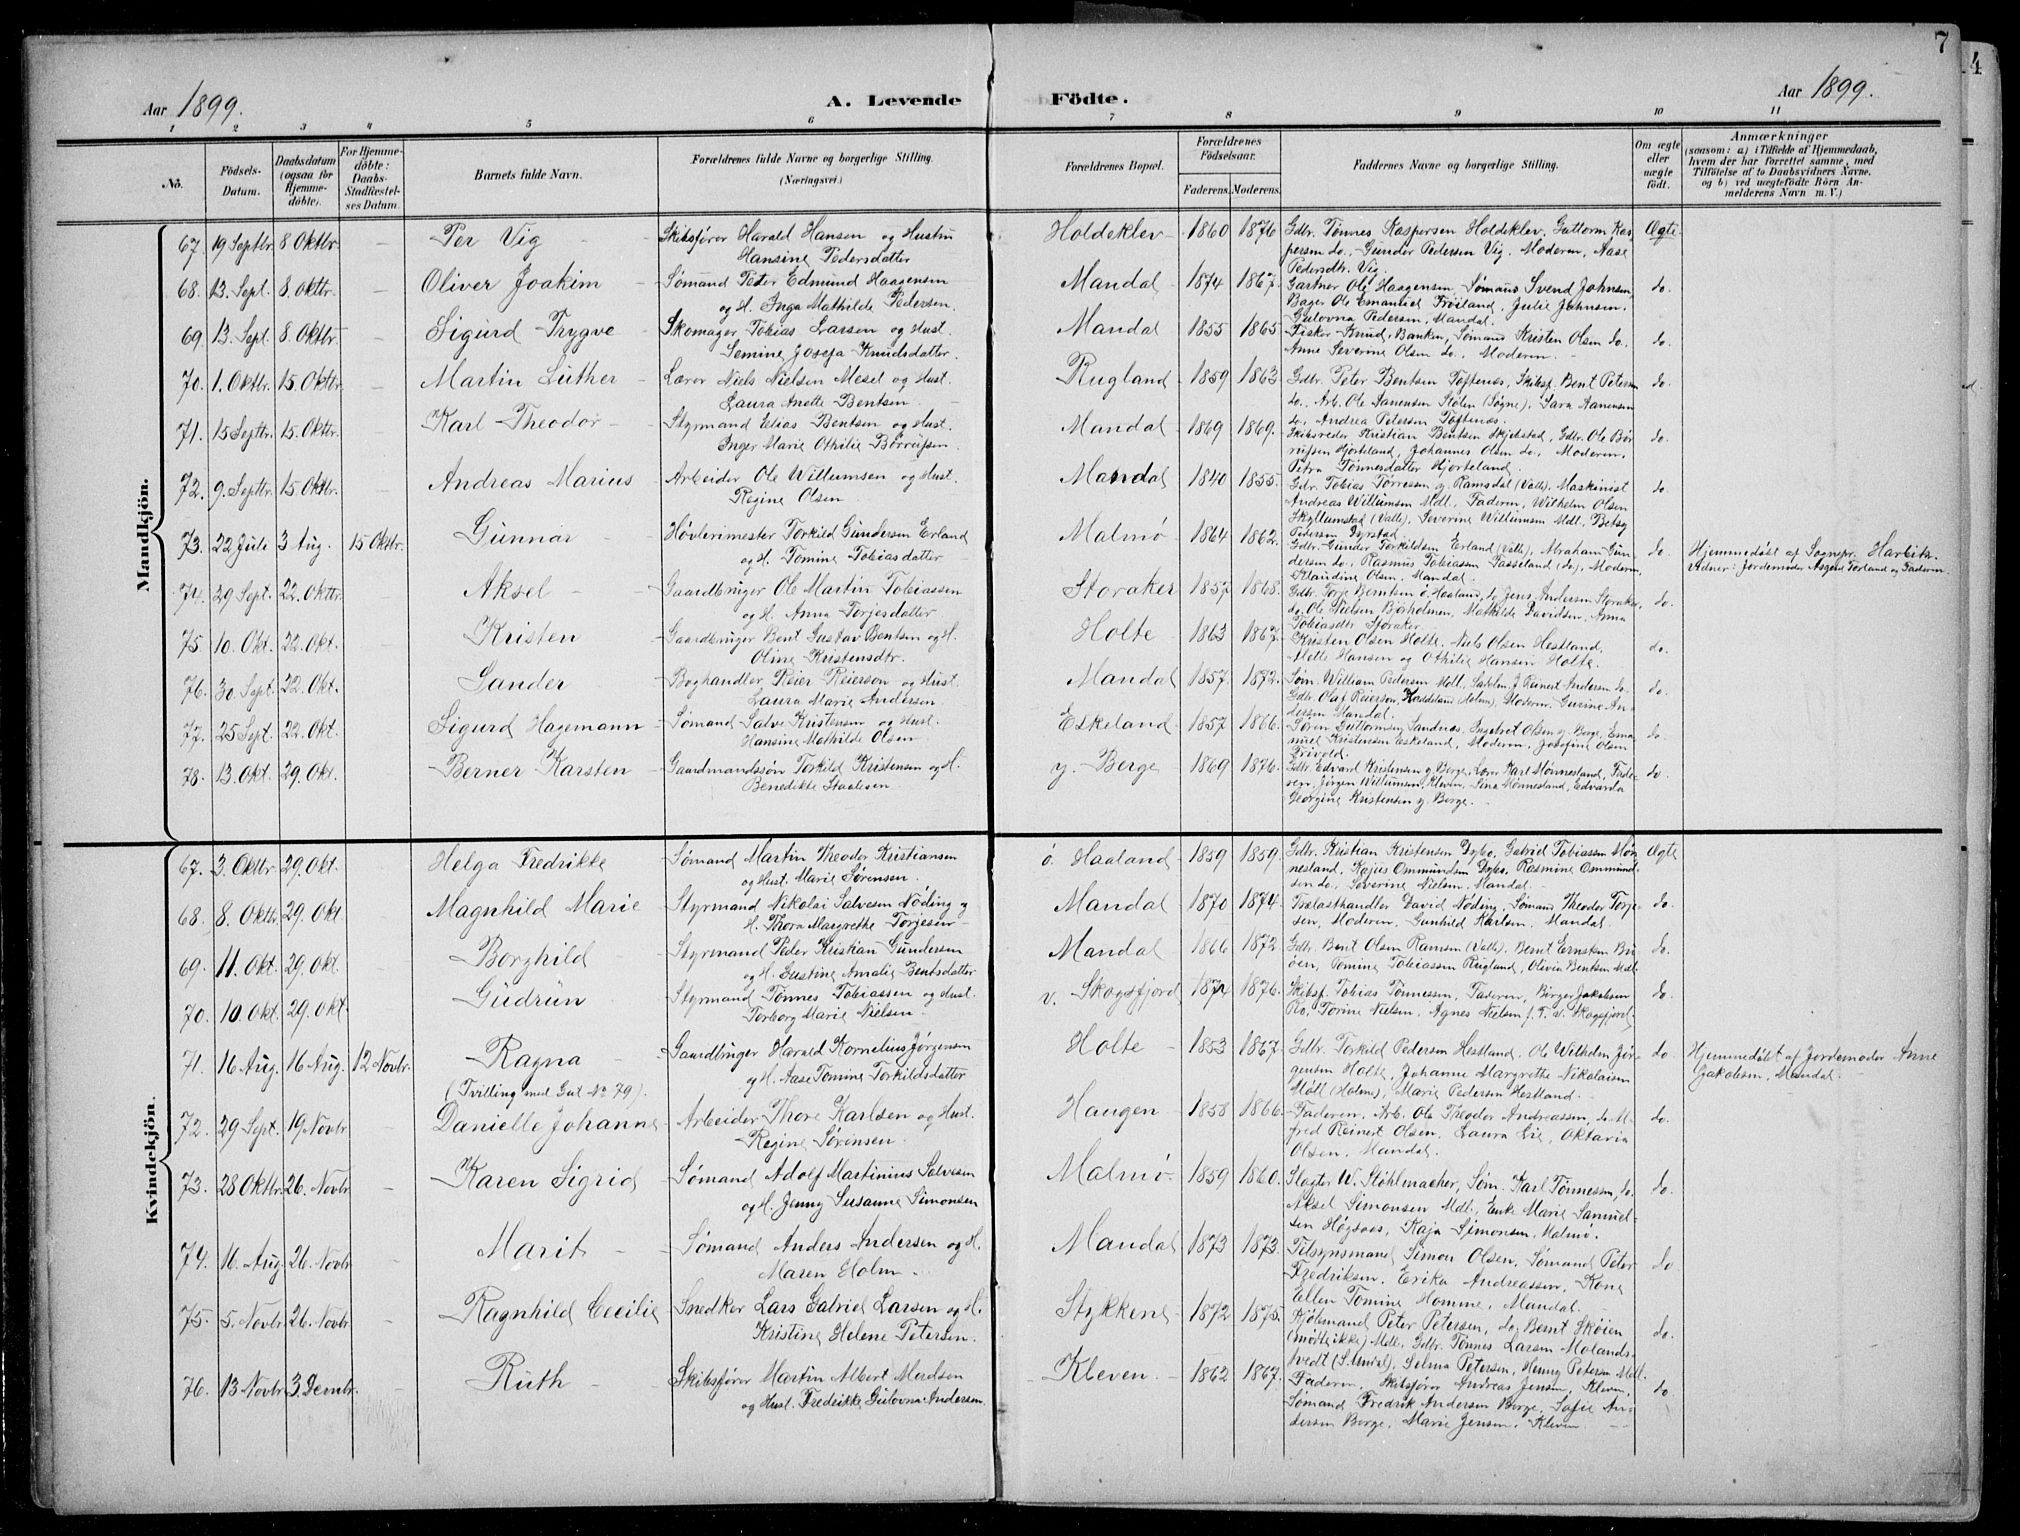 7
4
Aar 1899.
A. Levende
Födte.
Aar 1899.
1 2 3 4 5 6 7 8 9 10 11
No.
Födsels-Datum.
Daabsdatum (ogsaa for Hjemme-döbte).
For Hjemme-döbte: Daabs-Stadfæstel-ses Datum.
Barnets fulde Navn.
Forældrenes fulde Navne og borgerlige Stilling. (Næringsvei.)
Forældrenes Bopæl.
Forældrenes Födselsaar.
Faderens. Moderens.
Faddernes Navne og borgerlige Stilling.
Om ægte eller uægte födt.
Anmærkninger
(saasom: a) i Tilfælde af Hjemmedaab, hvem der har forrettet samme, med Tilföielse af to Daabsvidners Navne, og b) ved uægtefödte Börn An-melderens Navn m. V.)
Mandkjön.
67. 19 Septbr. 8 Oktbr. - Per Vig - Skibsfører Harald Hansen og Hustru Hansine Pedersdatter Holdeklev 1860 1876 Gdbr. Tønnes Kaspersen Holdeklev, Guttorm Kas-persen do., Gunder Pedersen Vig, Moderen, Aase Pedersdtr. Vig. Ægte
68. 13. Sept. 8. Oktbr. - Oliver Joakim - Sømand Peter Edmund Haagensen og H. Inga Mathilde Pedersen Mandal 1874 1867 Gartner Ole Haagensen, Sømand Svend Johnsen, Bager Ole Emanuel Frøiland, Julie Johnsen, Gulovna Pedersen, Mandal. do.
69. 13. Sept. 8. Oktbr. - Sigurd Trygve - Skomager Tobias Larsen og Hust. Semine Josefa Knudsdatter. Mandal 1855 1865 Fisker Knud, Banken, Sømand Kristen Olsen do., Anne Severine Olsen do., Moderen. do.
70. 1. Oktbr. 15. Oktbr. - Martin Luther - Lærer Niels Nielsen Mesel og Hust. Laura Anette Bentsen Rugland 1859 1863 Gdbr. Peter Bentsen Toftenes, Skibsf. Bent Petersen do., Arb. Ole Aanensen Stølen (Søgne), Sara Aanensen do., Andrea Petersen Toftenes. do.
71. 15 Septbr. 15. Oktbr. - Karl Theodor - Styrmand Elias Bentsen og Hust. Inger Marie Othilie Børrufsen Mandal 1869 1869. Skibsreder Kristian Bentsen Skjebstad, Gdbr. Ole Bör-rufsen Hjorteland, Johannes Olsen do., Moderen, Petra Tønnesdatter Hjorteland. do.
72. 9. Septbr. 15. Oktbr. - Andreas Marius - Arbeider Ole Willumsen og Hust. Regine Olsen Mandal 1840 1855. Gdbr. Tobias Torresen y. Ramsdal (Valle), Maskinist Andreas Willumsen Mdl., Faderen, Wilhelm Olsen Skyllumstad (Valle), Severine Willumsen Mdl., Betsy Pedersen Dyrstad. do.
73. 22 Juli 3 Aug. 15 Oktbr. Gunnar - Høvlerimester Torkild Gundersen Erland og H. Tomine Tobiasdatter Malmø 1864 1862. Gdbr. Gunder Torkildsen Erland (Valle), Abraham Gun-dersen do., Rasmus Tobiassen Fasseland (do), Moderen, Klaudine Olsen, Mandal. do. Hjemmedøbt af Sognepr. Harbitz. Vidner: Jordemoder Torland og Faderen.
74. 29 Sept. 22. Oktbr. - Aksel - Gaardbruger Ole Martin Tobiassen og H. Anna Torjesdatter Storaker 1857 1868. Gdbr. Torje Berntsen ø. Haaland, do Jens Andersen Storaker, do. Ole Nielsen Börholmen, Mathilde Davidsen, Anna Tobiasdtr Storaker. do.
75. 10. Okt. 22. Okt. - Kristen Gaardbruger Bent Gustav Bentsen og H. Oline Kristensdtr. Holte 1863 1867. Kristen Olsen Holte, Niels Olsen Hestland, Mette Hansen og Othilie Hansen Holte. do.
76. 30. Sept. 22. Okt. - Sander Boghandler Reier Reierson og Hust. Laura Marie Andersen Mandal 1857. 1872. Søm. William Pedersen Mdl., Sadelm. J. Reinert Andersen do. Gdbr. Olaf Reierson, Krossland (Holm), Moderen, Gurine An-dersen Mandal. do.
77. 25 Sept. 22. Okt. - Sigurd Hagemann - Sømand Salve Kristensen og Hust. Hansine Mathilde Olsen Eskeland 1857 1866. Søren Guttormsen Sandnes, Ingebret Olsen y. Berge, Ema-nuel Kristensen Eskeland, Moderen, Josefine Olsen Frivold. do.
78. 13. Okt. 29. Okt. - Berner Karsten - Gaardmandssøn Torkild Kristensen og H. Benedikte Staalesen y. Berge 1869 1876. Gdbr. Edvard Kristensen y. Berge, Lærer Karl Mønnesland, Fade-ren, Jørgen Willumsen, Kleven, Sina Mønnesland, Edvarda Georgine Kristensen y. Berge. do.
Kvindekjön.
67. 3. Oktbr. 29. Okt. Helga Fredrikke Sømand Martin Theodor Kristiansen og Hust. Marie Sørensen. ø. Haaland 1859 1859. Gdbr. Kristian Kristensen Dybo, Gabriel Tobiassen Møn-nesland, Kajus Ommundsen Dybo, Rasmine Ommund-sen do., Severine Nielsen, Mandal. Ægte
68. 8. Oktbr. 29. Okt. - Magnhild Marie Styrmand Nikolai Salvesen Nøding og H. Thora Margrethe Torjesen Mandal 1870 1874. Trælasthandler David Nøding, Sømand Theodor Torje-sen, Moderen, Gunhild Karlsen, Mandal. do.
69. 11. Okt. 29. Okt. - Borghild - Styrmand Peder Kristian Gundersen og H. Gustine Amalie Bentsdatter Mandal 1866 1872 Gdbr. Bent Olsen Ramsen (Valle), Bernt Ernstsen Bu-øen, Tomine Tobiassen Rugland, Olivia Bentsen Mdl. do.
70. 10. Okt. 29. Okt. Gudrun Styrmand Tønnes Tobiassen og Hust. Torborg Marie Nielsen v. Skogsfjord 1874 1876. Skibsf. Tobias Tønnessen, Faderen, Börger Jakobsen Ro, Torine Nielsen, Agnes Nielsen f. T. v. Skogsfjord. do.
71. 16 Aug. 16 Aug. 12 Novbr. Ragna (Tvilling med Gut No 79). Gaardbruger Harald Kornelius Jørgensen og H. Aase Tomine Torkildsdatter Holte 1853 1867. Gdbr. Torkild Pedersen Hestland, Ole Wilhelm Jør-gensen Holte, Johanne Margrethe Nikolaisen Møll (Holme), Marie Pedersen Hestland. do. Hjemmedøbt af Jordemoder Anne Jakobsen, Mandal.
72. 29 Sept. 19 Novbr. Danielle Johanne Arbeider Thore Karlsen og Hust. Regine Sørensen. Haugen 1858 1866. Faderen, Arb. Ole Theodor Andreassen, do. Al-fred Reinert Olsen, Laura Lie, Oktavia Olsen, Mandal. do.
73. 28 Oktbr. 26. Novbr. Karen Sigrid Sømand Adolf Martinius Salvesen og H. Jenny Susanne Simonsen Malmø. 1859 1860. Slagter W. Stöhlmacher, Søm. Karl Tønnessen, do. Aksel Simonsen Mdl., Enke Marie Samuel-sen Høgsaas, Kaja Simonsen, Malmø. do.
74. 16. Aug. 26. Novbr. - Marit - Sømand Anders Andersen og H. Maren Holm Mandal 1873 1873. Tilsynsmand Simon Olsen, Sømand Peter Fredriksen, Erika Andreassen, Kone Ellen Tomine Homme, Mandal. do.
75. 5. Novbr. 26. Novbr. Ragnhild Cecilie Snedker Lars Gabriel Larsen og H. Kristine Helene Petersen. Stykkene 1872 1875. Kjøbmand Peter Petersen, do Bernt Skøien (mødte ikke) Mdl., Gdbr. Tønnes Larsen Molands-tvedt (S. Undal), Selma Petersen, Henny Petersen Mdl. do.
76. 13 Novbr. 3 Decmbr. Ruth - Skibsfører Martin Albert Mordson og Hust. Fredrikke Gulovna Andersen Kleven 1862 1867. Faderen, Skibsfører Andreas Jensen, Kleven, Sømand Fredrik Andersen Berge, Sofie An-dersen Berge, Marie Jensen, Kleven do.